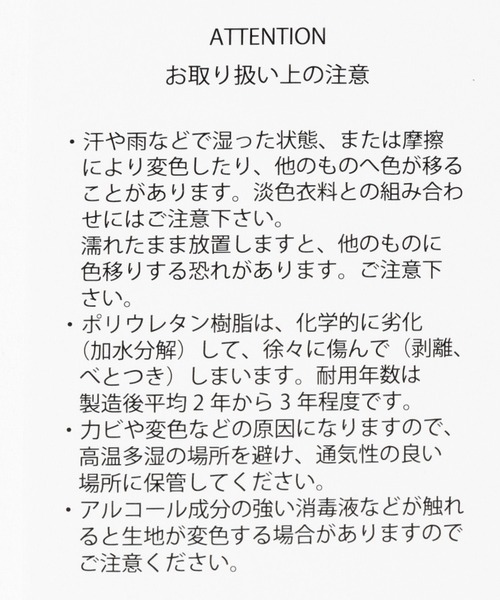 ATTENTION
お取り扱い上の注意
・汗や雨などで湿った状態、または摩擦
により変色したり、他のものへ色が移る
ことがあります。淡色衣料との組み合わ
せにはご注意下さい。
濡れたまま放置しますと、他のものに
色移りする恐れがあります。ご注意下
さい。
・ポリウレタン樹脂は、化学的に劣化
（加水分解）して、徐々に傷んで（剥離、
べとつき）しまいます。耐用年数は
製造後平均 2 年から 3 年程度です。
・カビや変色などの原因になりますので、
高温多湿の場所を避け、通気性の良い
場所に保管してください。
・アルコール成分の強い消毒液などが触れ
ると生地が変色する場合がありますので
ご注意ください。